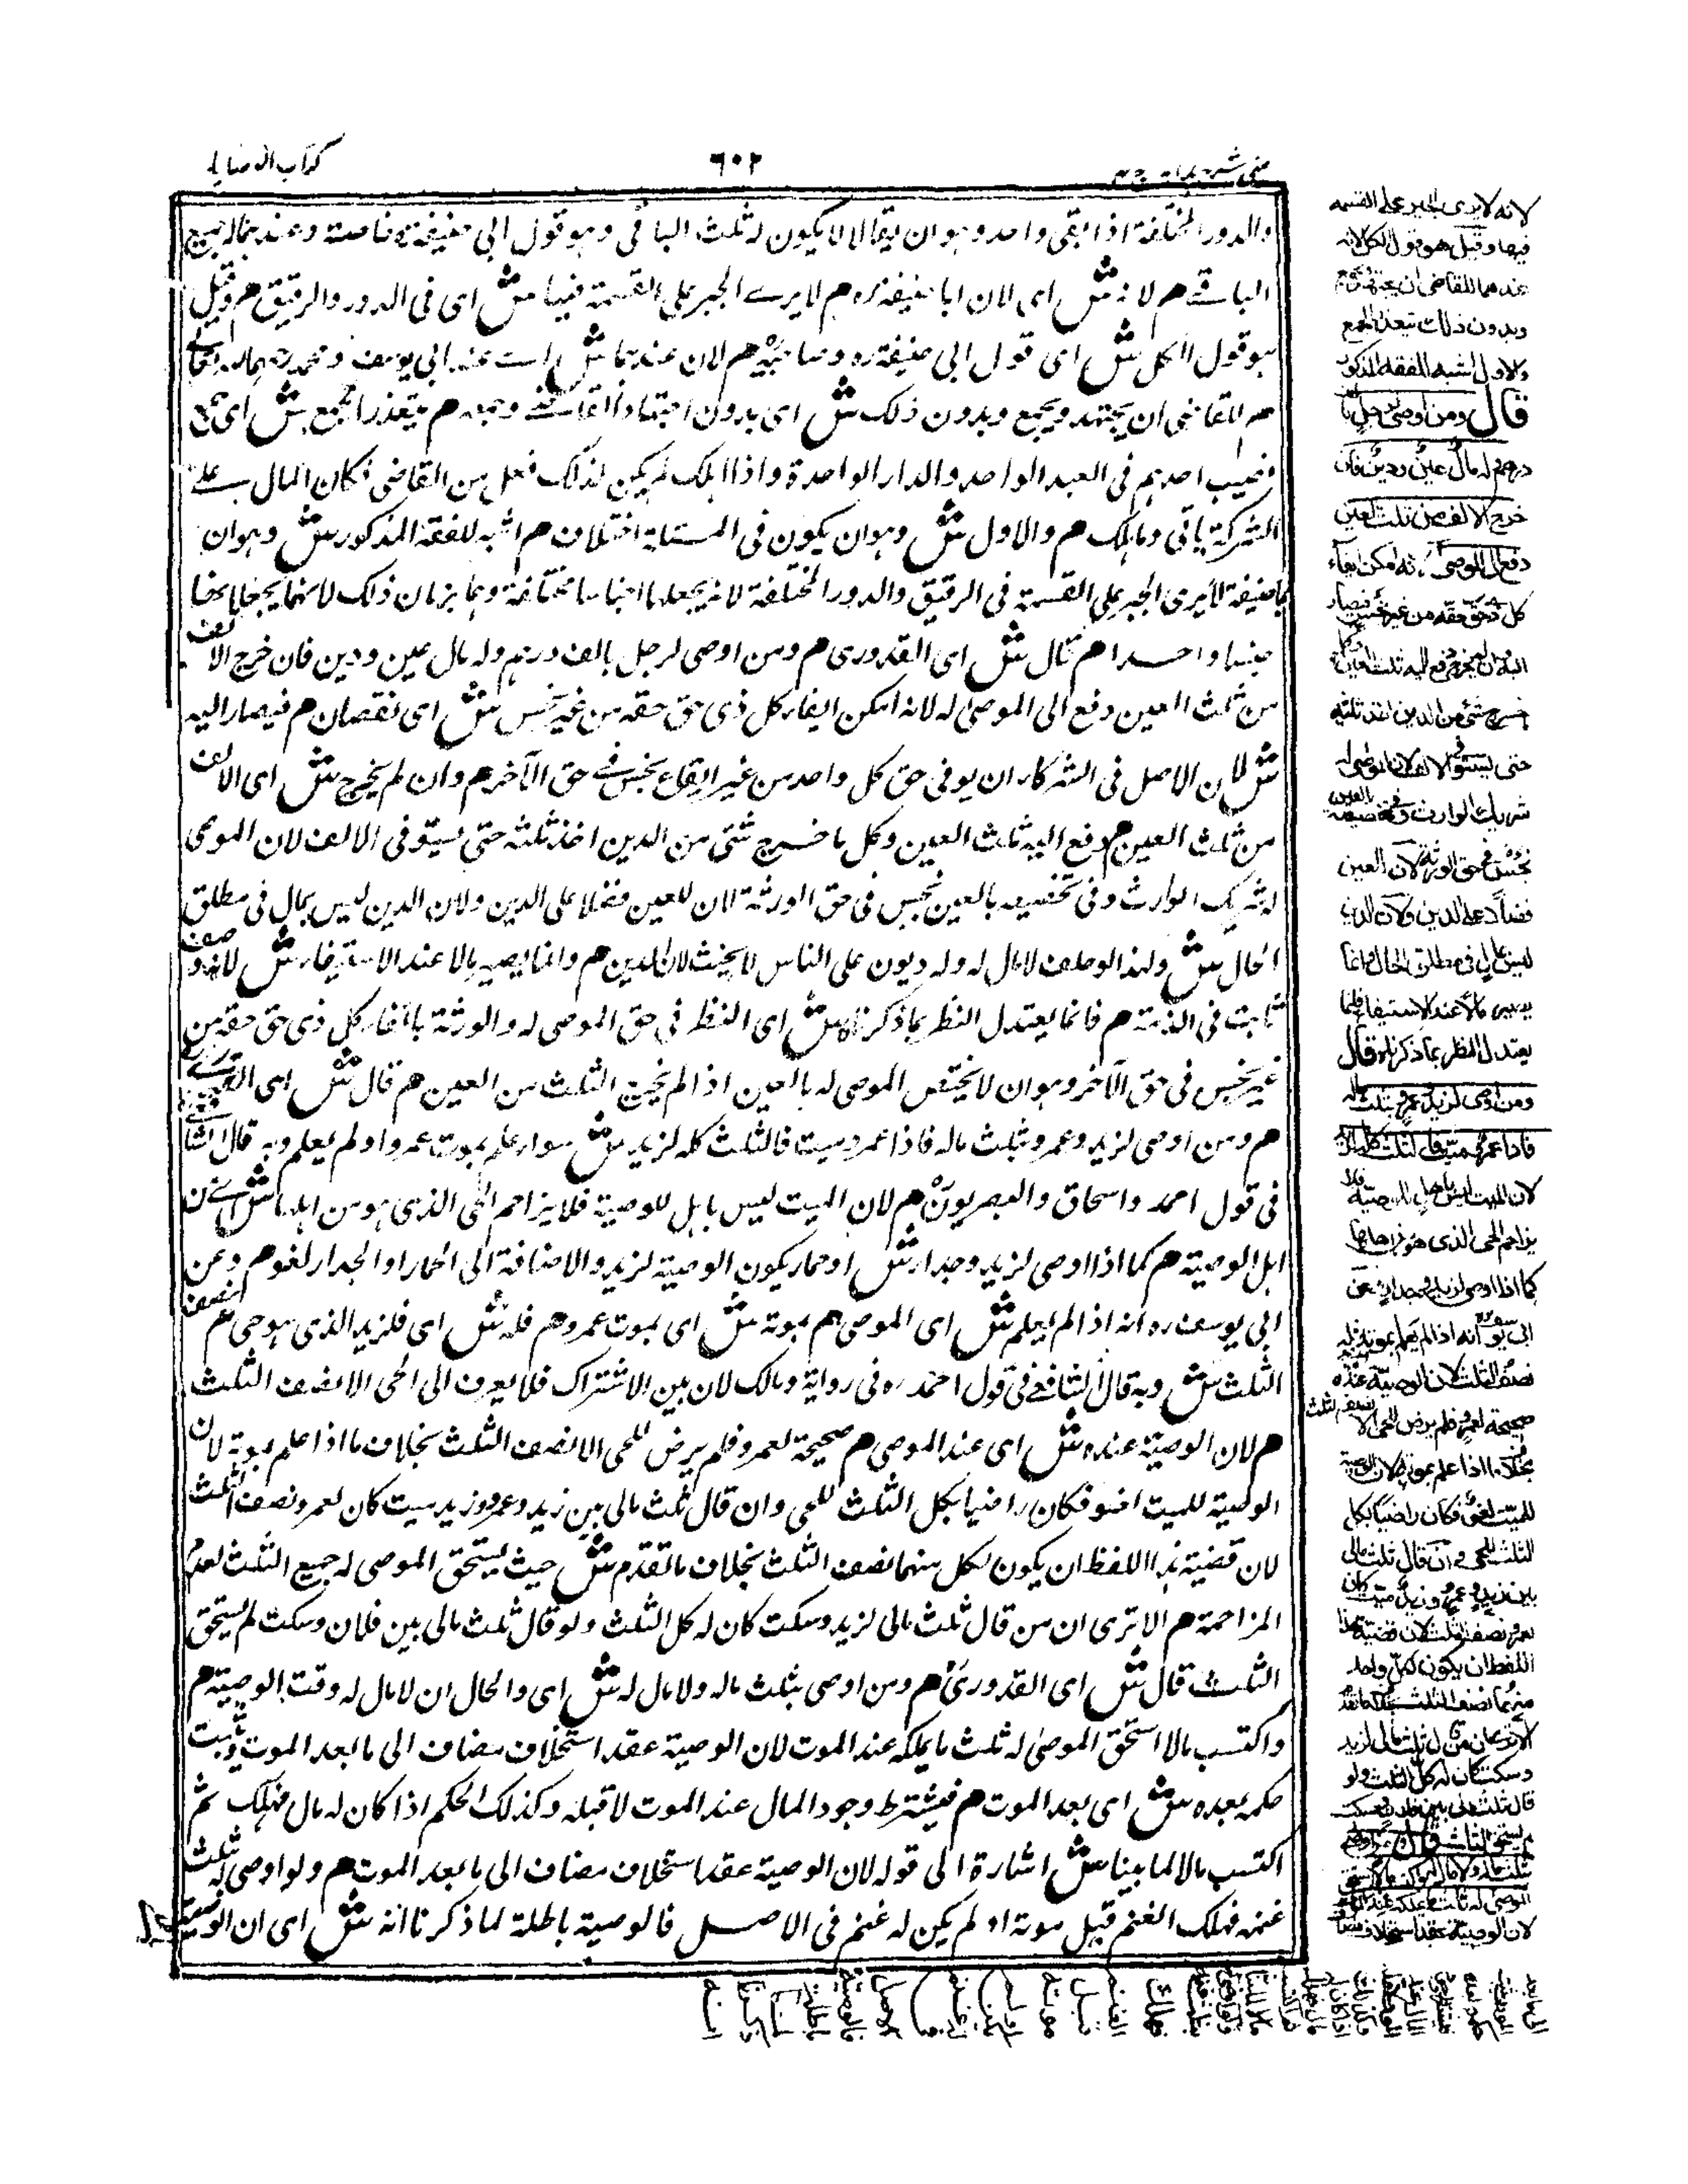 ٦٠٢
والدور المختلفة اذا بقى واحد وهو ان يقال لا يكون له ثلث الباقى وهو قول ابى حنيفة رح خاصة وعندهما له جميع
الباقے هم لانه ش اى لان ابا حنيفة ره هم لا يرے الجبر على القسمة فيها ش اى فى الدور والرقيق هم وقيل
هو قول الكل ش اى قول ابى حنيفة ره وصاحبيه هم لان عندهما ش اے عند ابى يوسف ومحمد
هم للقاضى ان يجتهد ويجمع وبدون ذلك ش اى بدون اجتهاد القاضے وجمعه هم يتعذر الجمع ش اى جمع
نصيب احدهم فى العبد الواحد والدار الواحدة واذا هلك لم يكن لذلك فعل من القاضى فكان المال علے
الشركة باقى وهالك هم والاول ش وهو ان يكون فى المسئلة اختلاف هم اشبه للفقه المذكور ش وهو ان
ابا حنيفة لا يرى الجبر على القسمة فى الرقيق والدور المختلفة لانه يجعلها اجناسا مختلفة وهما يريان ذلك لانهما يجعلانها
جنسا واحدا هم قال ش اى القدورى هم ومن اوصى لرجل بالف درهم وله مال عين ودين فان خرج الالف
من ثلث العين دفع الى الموصى له لانه امكن ايفاء كل ذى حق حقه من غير بخس ش اى نقصان هم فيصار اليه
ش لان الاصل فى الشركاء ان يوفى حق كل واحد من غير ايقاع بخس فے حق الآخر هم وان لم يخرج ش اى الالف
من ثلث العين هم دفع اليه ثلث العين وكل ما خرج شئ من الدين اخذ ثلثه حتى يستوفى الالف لان الموصى
له شريك الوارث وفى تخصيصه بالعين بخس فى حق الورثة لان للعين فضلا على الدين ولان الدين ليس بمال فى مطلق
الحال ش ولهذا لو حلف لا مال له وله ديون على الناس لا يحنث لان الدين هم وانما يصير مالا عند الاستيفاء ش لانه وصف
ثابت فى الذمة هم فانما يعتدل النظر بما ذكرناه ش اى النظر فى حق الموصى له والورثة بايفاء كل ذى حق حقه من
غير بخس فى حق الآخر وهو ان لا يختص الموصى له بالعين اذا لم يخرج الثلث من العين هم قال ش اى القدورے
هم ومن اوصى لزيد وعمرو بثلث ماله فاذا عمرو ميت فالثلث كله لزيد ش سواء علم بموت عمرو او لم يعلم وبه قال الشافعے
فى قول احمد واسحاق والبصريون هم لان الميت ليس باهل للوصية فلا يزاحم الحى الذى هو من اهلها ش اے من
اهل الوصية هم كما اذا اوصى لزيد وجدار ش او حمار يكون الوصية لزيد والاضافة الى الحمار او الجدار لغو هم وعن
ابى يوسف ره انه اذا لم يعلم ش اى الموصى هم بموته ش اى بموت عمرو هم فله ش اى فلزيد الذى هو حى هم نصف
الثلث ش وبه قال الشافعے فى قول احمد ره فى رواية ومالك لان بين الاشتراك فلا يصرف الى الحى الا نصف الثلث
هم لان الوصية عنده ش اى عند الموصى هم صحيحة لعمرو فلم يرض للحى الا نصف الثلث بخلاف ما اذا علم بموته لان
الوصية للميت لغو فكان راضيا بكل الثلث للحى وان قال ثلث مالى بين زيد وعمرو وزيد ميت كان لعمرو نصف الثلث
لان قضية هذا اللفظ ان يكون لكل منهما نصف الثلث بخلاف ما تقدم ش حيث يستحق الموصى له جميع الثلث لعدم
المزاحمة هم الا ترى ان من قال ثلث مالى لزيد وسكت كان له كل الثلث ولو قال ثلث مالى بين فلان وسكت لم يستحق
الثلث قال ش اى القدورى هم ومن اوصى بثلث ماله ولا مال له ش اى والحال ان لا مال له وقت الوصية هم
واكتسب مالا استحق الموصى له ثلث ما يملكه عند الموت لان الوصية عقد استخلاف مضاف الى ما بعد الموت ويثبت
حكمه بعده ش اى بعد الموت هم فيشترط وجود المال عند الموت لا قبله وكذلك الحكم اذا كان له مال فهلك ثم
اكتسب مالا لما بينا ش اشارة الى قوله لان الوصية عقد استخلاف مضاف الى ما بعد الموت هم ولو اوصى له بثلث
غنمه فهلك الغنم قبل موته او لم يكن له غنم فى الاصل فالوصية باطلة لما ذكرنا انه ش اى ان الوصية
لانه لا يرى الجبر على القسمة
فيها وقيل هو قول الكل لانه
عندهما للقاضى ان يجتهد ويجمع
وبدون ذلك يتعذر الجمع
والاول اشبه للفقه المذكور
قال ومن اوصى لرجل بالف
درهم وله مال عين ودين فان
خرج الالف من ثلث العين
دفع الى الموصى له لانه امكن ايفاء
كل ذى حق حقه من غير بخس فيصار
اليه وان لم يخرج دفع اليه ثلث العين وكلما
خرج شئ من الدين اخذ ثلثه
حتى يستوفى الالف لان الموصى له
شريك الوارث وفى تخصيصه بالعين
بخس فى حق الورثة لان العين
فضلا على الدين ولان الدين
ليس بمال فى مطلق الحال وانما
يصير مالا عند الاستيفاء فانما
يعتدل النظر بما ذكرناه قال
ومن اوصى لزيد وعمرو بثلث ماله
فاذا عمرو ميت فالثلث كله لزيد
لان الميت ليس باهل للوصية فلا
يزاحم الحى الذى هو من اهلها
كما اذا اوصى لزيد وجدار وعن
ابى يوسف انه اذا لم يعلم بموته فله
نصف الثلث لان الوصية عنده
صحيحة لعمرو فلم يرض للحى الا نصف الثلث
بخلاف ما اذا علم بموته لان الوصية
للميت لغو فكان راضيا بكل
الثلث للحى وان قال ثلث مالى
بين زيد وعمرو وزيد ميت كان
لعمرو نصف الثلث لان قضية هذا
اللفظ ان يكون لكل واحد
منهما نصف الثلث بخلاف ما تقدم
الا ترى ان من قال ثلث مالى لزيد
وسكت كان له كل الثلث ولو
قال ثلث مالى بين فلان وسكت
لم يستحق الثلث قال ومن اوصى
بثلث ماله ولا مال له واكتسب مالا استحق
الموصى له ثلث ما يملكه عند الموت
لان الوصية عقد استخلاف مضاف